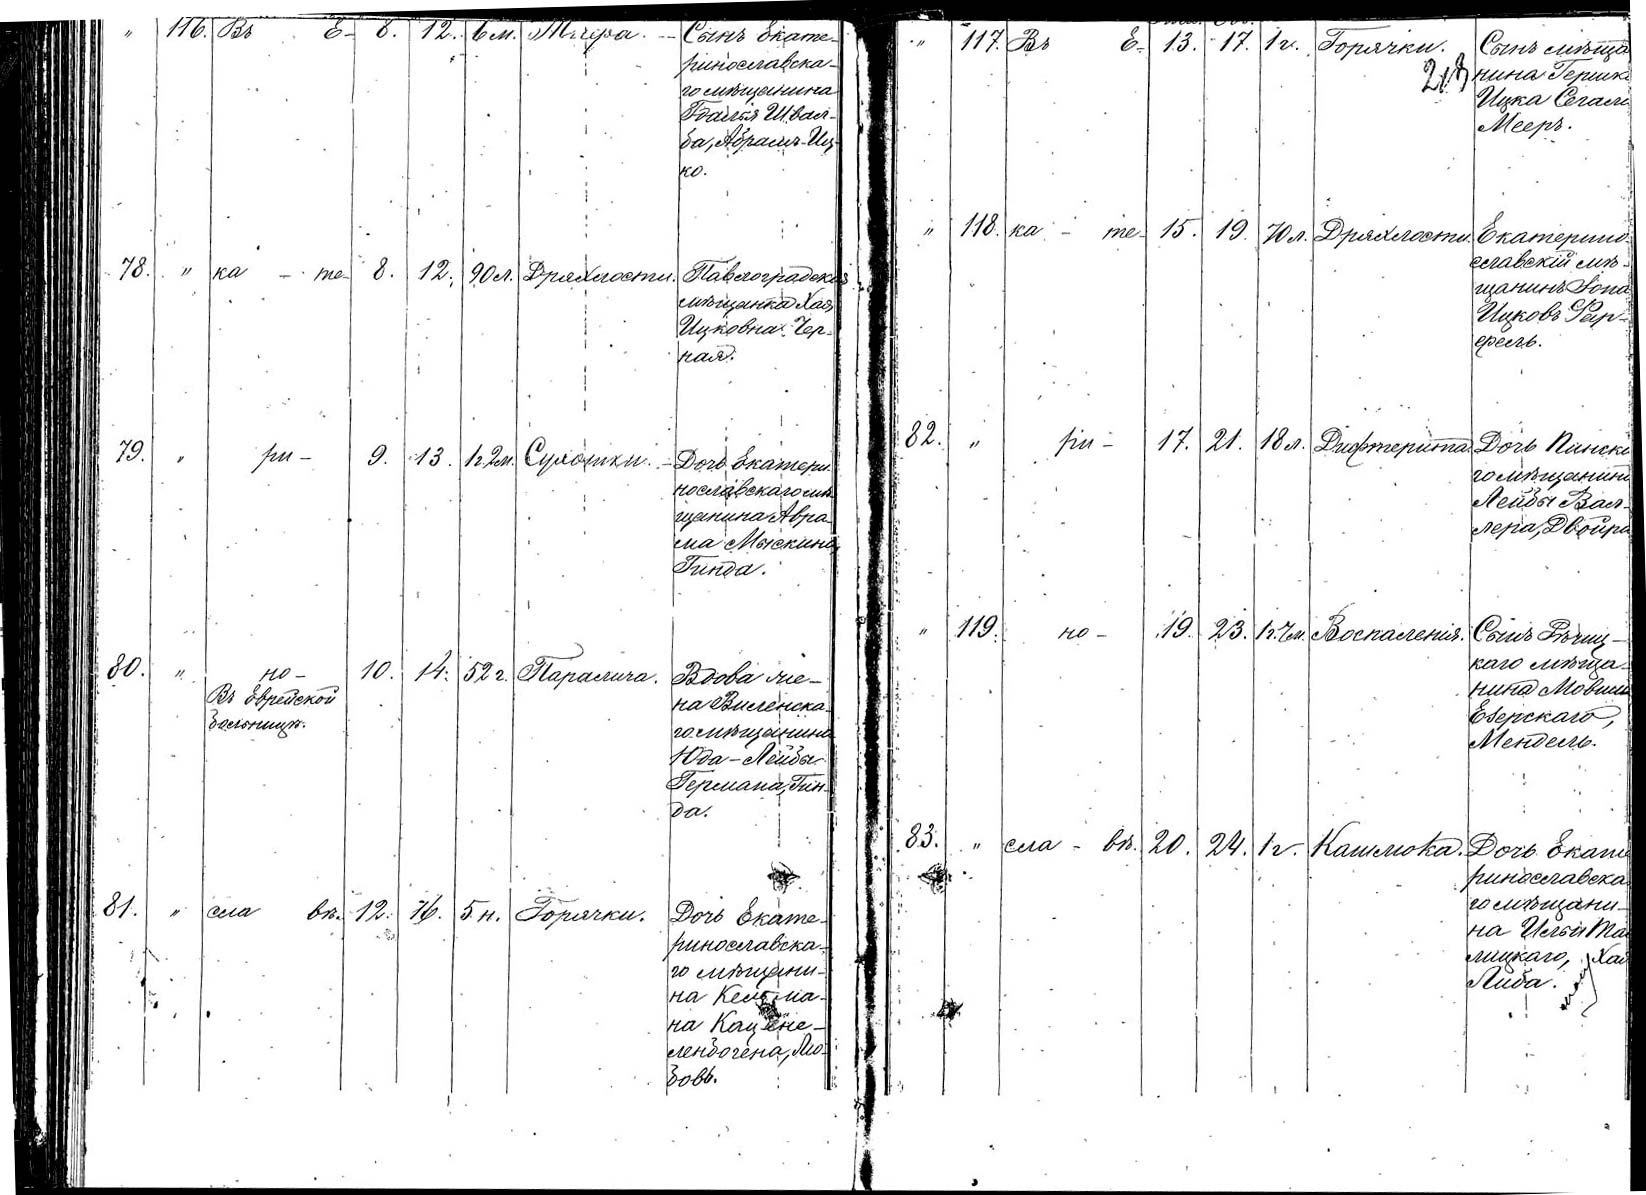 " 116. Въ Е- 8. 12. 6 м. Сынъ Екате-
ринославска-
го мѣщанина
ба, Абрамъ-Иц-
ко.
78. " ка - те- 8. 12. 90 л. Дряхлости. Павлоградская
мѣщанка Хая
Ицковна Чер-
ная.
79. " ри- 9. 13. 1 г. 2 м. Сухотки. Дочь Екатери-
нославскаго мѣ-
щанина Авра-
ма Мыскина
Гинда.
80. " но- 10. 14. 52 г. Паралича. Вдова же-
Въ Еврейской
больницѣ.
на Виленска-
го мѣщанина
Юда-Лейбы
Германа, Гин-
да.
81. " сла вѣ. 12. 16. 5 н. Горячки. Дочь Екате-
ринославска-
го мѣщани-
на Келмма-
на Кацене-
ленбогена, Лю-
бовь.
" 117. Въ Е- 13. 17. 1 г. Горячки. Сынъ мѣща
213
нина Гершк
Ицка Сегал
Мееръ.
" 118. ка - те- 15. 19. 70 л. Дряхлости. Екатерино-
славскій мѣ-
щанинъ
Ицковъ Гар-
фель.
82. " ри- 17. 21. 18 л. Дифтерита. Дочь Пинск
го мѣщанин
Лейбы Вал-
лера, Двойра
" 119. но- 19. 23. 1 г. 7 м. Воспаленія. Сынъ Рѣчиц-
каго мѣща-
нина Мовши
Езерскаго,
Мендель.
83. " сла - вѣ. 20. 24. 1 г. Кашлюка. Дочь Екате
ринославска
го мѣщани-
на Ильи Та
лицкаго, Хая
Либа.